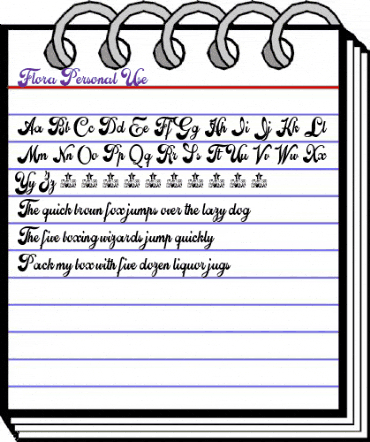 Flora Personal Use
Aa Bb Cc Dd Ee Ff Gg Hh Ii Jj Kk Ll
Mm Nn Oo Pp Qq Rr Ss Tt Uu Vv Ww Xx
Yy Zz
The quick brown fox jumps over the lazy dog
The five boxing wizards jump quickly
Pack my box with five dozen liquor jugs